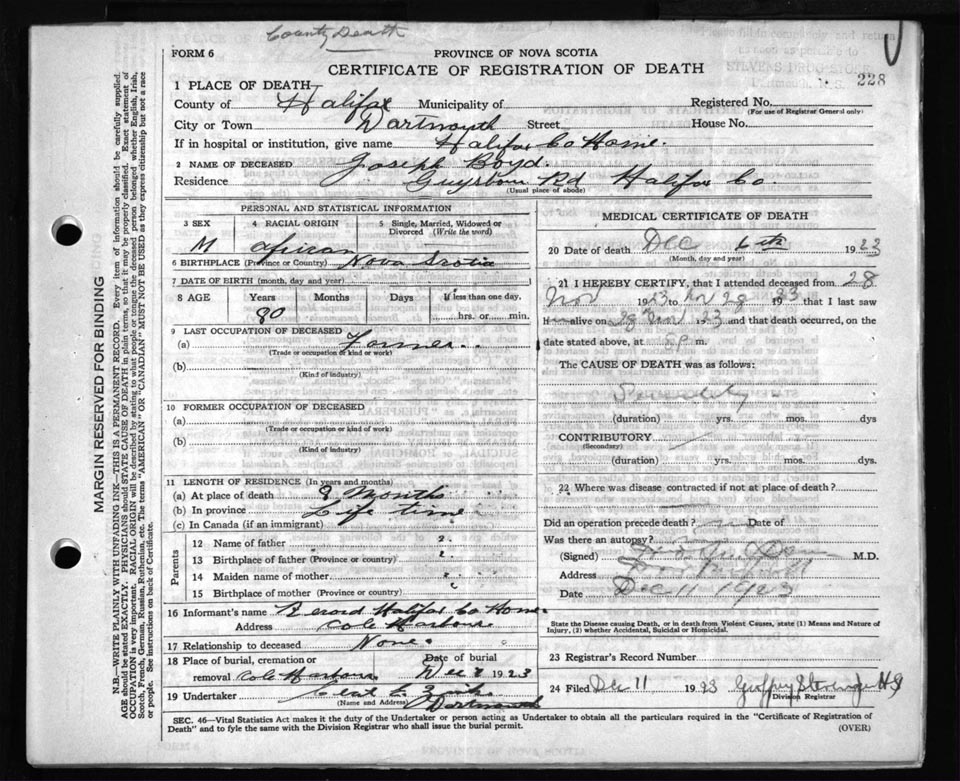 County Death
FORM 6
PROVINCE OF NOVA SCOTIA
CERTIFICATE OF REGISTRATION OF DEATH
228
1 PLACE OF DEATH
County of Halifax Municipality of Registered No.
(For use of Registrar General only)
City or Town Dartmouth Street House No.
If in hospital or institution, give name Halifax Co Home.
2 NAME OF DECEASED Joseph Boyd.
Residence Guysboro Rd Halifax Co.
(Usual place of abode)
PERSONAL AND STATISTICAL INFORMATION
3 SEX 4 RACIAL ORIGIN 5 Single, Married, Widowed or Divorced (Write the word)
M African
6 BIRTHPLACE (Province or Country) Nova Scotia
7 DATE OF BIRTH (month, day and year)
8 AGE Years Months Days If less than one day,
80 hrs. or min.
9 LAST OCCUPATION OF DECEASED
(a) Farmer.
(Trade or occupation of kind or work)
(b)
(Kind of industry)
10 FORMER OCCUPATION OF DECEASED
(a)
(Trade or occupation of kind or work)
(b)
(Kind of industry)
11 LENGTH OF RESIDENCE (In years and months)
(a) At place of death 8 Months
(b) In province Life time
(c) In Canada (if an immigrant)
Parents
12 Name of father ?
13 Birthplace of father (Province or country) ?
14 Maiden name of mother
15 Birthplace of mother (Province or country)
16 Informant's name Halifax Co Home
Address Cole Harbour
17 Relationship to deceased None
18 Place of burial, cremation or Date of burial
removal Cole Harbour Dec 1923
19 Undertaker
(Name and Address) Dartmouth
MEDICAL CERTIFICATE OF DEATH
20 Date of death Dec 6th 1923
(Month, day and year)
21 I HEREBY CERTIFY, that I attended deceased from 28
Nov 1923 to Nov 28 1923 that I last saw
him alive on 28 Nov 1923 and that death occurred, on the
date stated above, at m.
The CAUSE OF DEATH was as follows:
Senility
(duration) yrs. mos. dys
CONTRIBUTORY
(Secondary)
(duration) yrs. mos. dys.
22 Where was disease contracted if not at place of death?
Did an operation precede death? Date of
Was there an autopsy?
(Signed) M.D.
Address
Date Dec 11 1923
State the Disease Causing Death, or in death from Violent Causes, state (1) Means and Nature of
Injury, (2) whether Accidental, Suicidal or Homicidal.
23 Registrar's Record Number
24 Filed Dec 11 1923
Division Registrar
SEC. 46—Vital Statistics Act makes it the duty of the Undertaker or person acting as Undertaker to obtain all the particulars required in the "Certificate of Registration of
Death" and to fyle the same with the Division Registrar who shall issue the burial permit. (OVER)
MARGIN RESERVED FOR BINDING
N.B.—WRITE PLAINLY WITH UNFADING INK—THIS IS A PERMANENT RECORD. Every item of information should be carefully supplied.
AGE should be stated EXACTLY. PHYSICIANS should STATE CAUSE OF DEATH in plain terms, so that it may be properly classified. Exact statement of
OCCUPATION is very important. RACIAL ORIGIN will be described by stating to what people or tongue the deceased person belonged whether English, Irish,
Scotch, French, German, Russian, Ruthenian, etc. The terms "AMERICAN" OR "CANADIAN" MUST NOT BE USED as they express citizenship but not a race
or people. See instructions on back of Certificate.